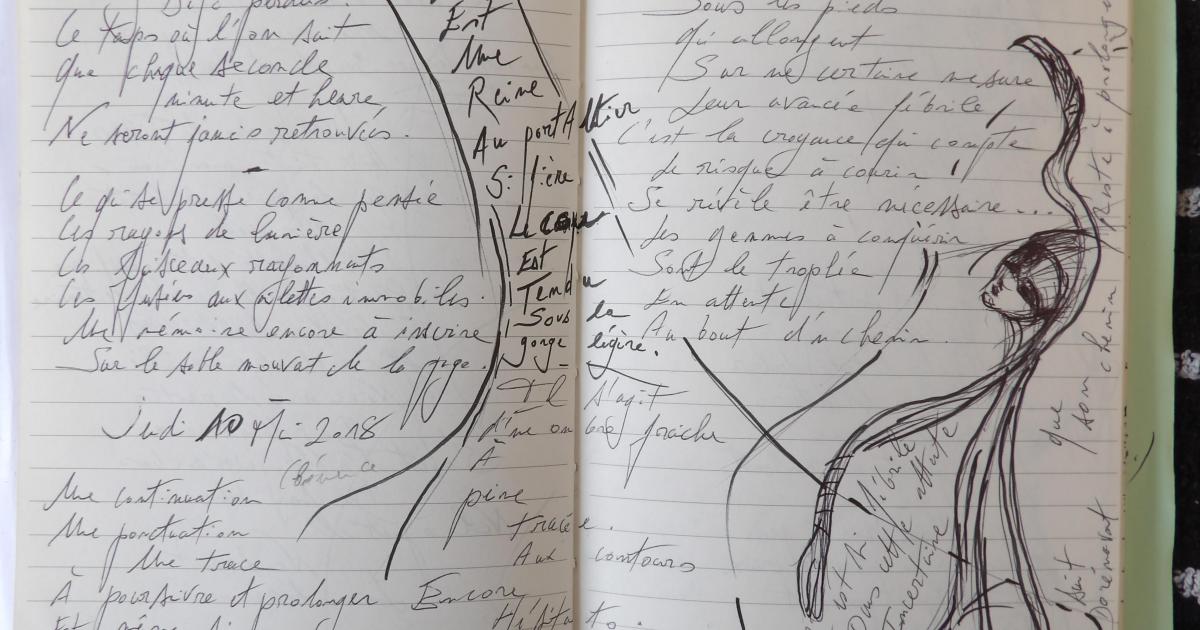 Déjà perdus.
Le temps où l'on sait
Que chaque seconde
minute et heure,
Ne seront jamais retrouvées.
Ce qui se presse comme pensée
Les rayons de lumière
Les faisceaux rayonnants
Les fusées aux ailettes immobiles.
Une mémoire encore à inscrire
Sur le sable mouvant de la page.
Jeudi 10 Mai 2018
Une continuation
Une ponctuation
Une trace
À poursuivre et prolonger
Est
Une
Reine
Au port Altier
Si fière
Le
Est
Tendu
Sous la
gorge légère.
Il s'agit
d'une ombre fraîche
À
peine
tracée.
Aux contours
Encore
Hésitants.
Sous les pieds
qui allongent
Sur une certaine mesure
Leur avancée fébrile,
C'est la croyance qui compte
Le risque à courir !
Se révèle être nécessaire...
Les gemmes à conquérir
Sont le trophée
En attente
Au bout d'un chemin.
prête à prolonger
que son chemin
fébrile
Dans cette attente
soit
Dorénavant